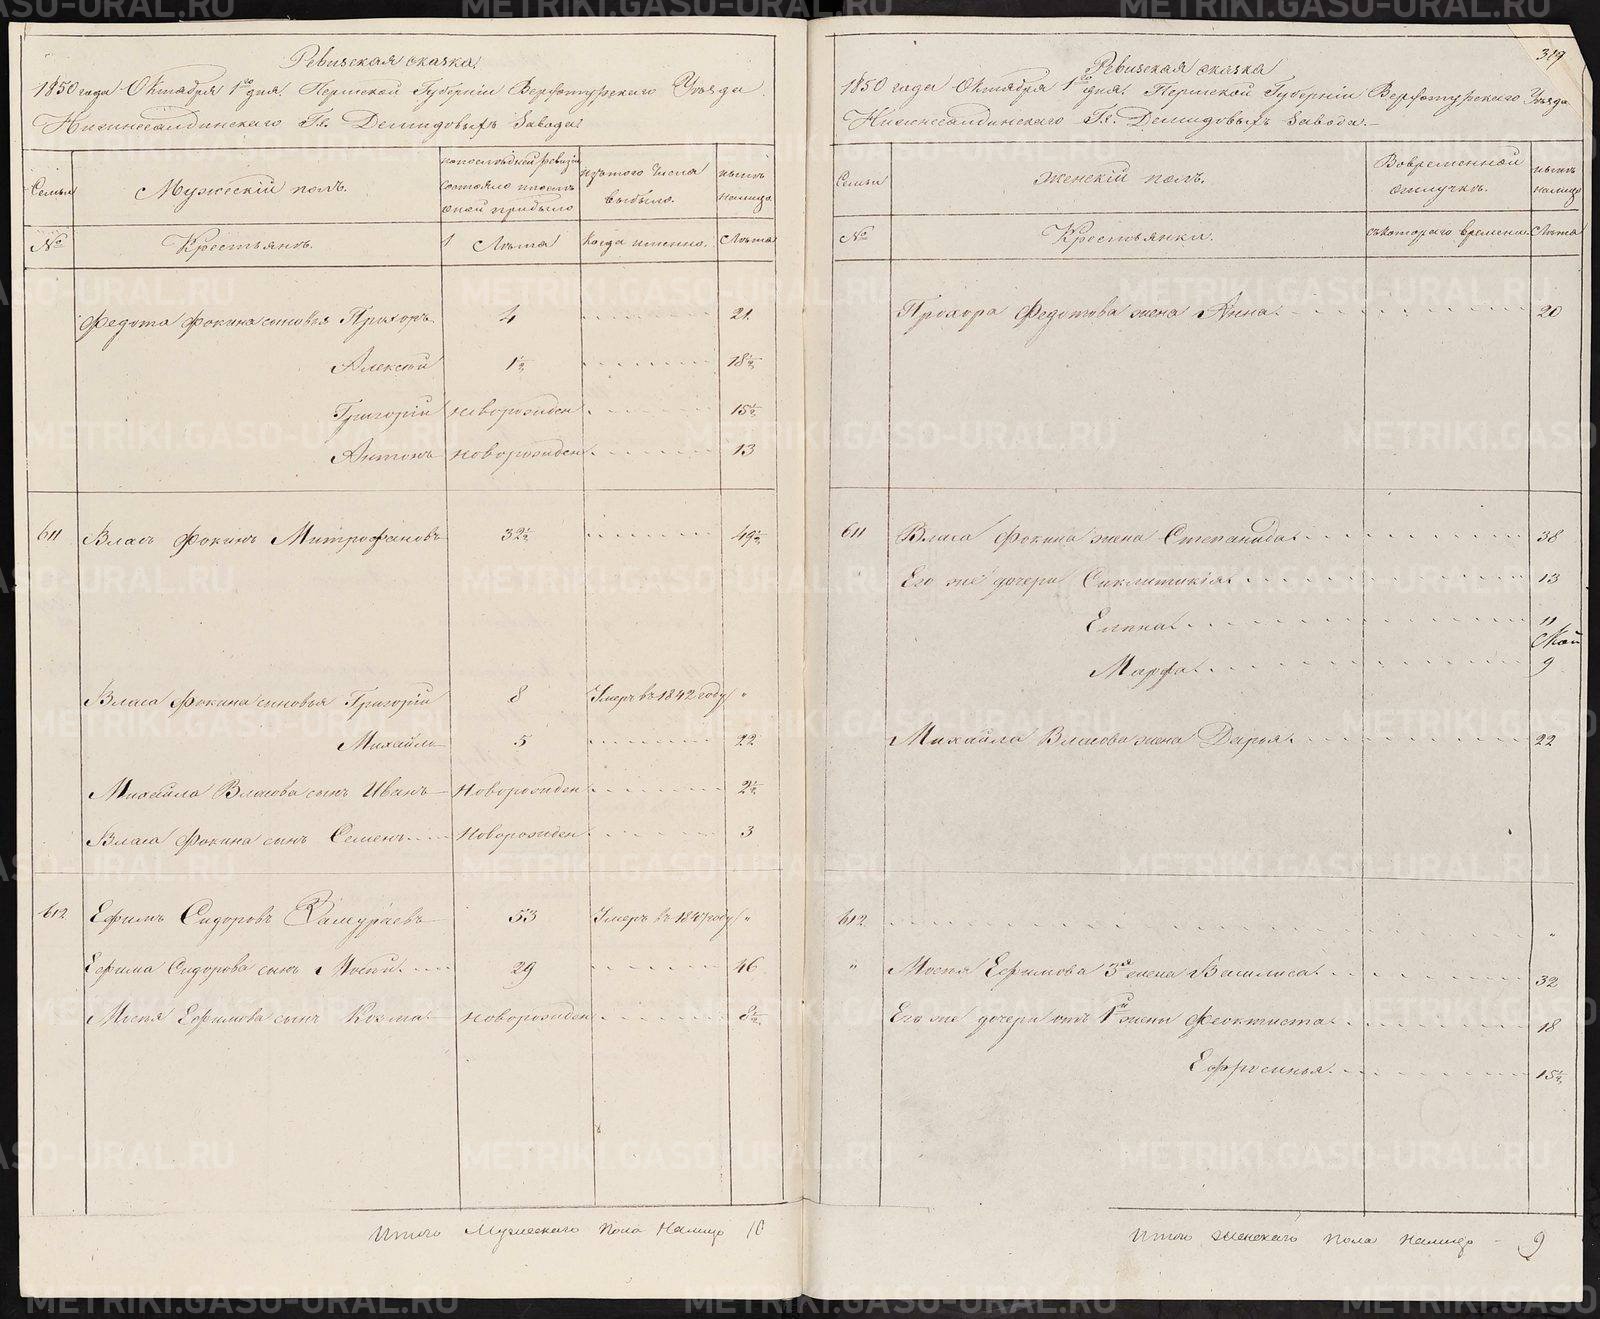 Ревизская сказка
1850 года Октября 1го дня. Пермской Губерніи Верхотурскаго Уѣзда
Нижнесалдинскаго Гг. Демидовыхъ Завода.
Семьи
Мужескій полъ.
попослѣдней ревизіи состояло и послѣ оной прибыло
изътого числа выбыло.
нынѣ налицо
№
Крестьянъ.
Лѣта
Когда именно.
Лѣта
Федота Фокина сыновья Прохоръ 4 21
Алексѣй 1½ 18½
Григорій новорожден 15½
Антонъ новорожден 13
611 Власъ Фокинъ Митрофановъ 32½ 49½
Власа Фокина сыновья Григорій 8 Умеръ въ 1842 году "
Михайлъ 5 22
Михайла Власова сынъ Иванъ Новорожден 2½
Власа Фокина сынъ Семенъ Новорожден 3
612 Ефимъ Сидоровъ Замураевъ 53 Умеръ въ 1847 году "
Ефима Сидорова сынъ Мосѣй 29 46
Мосѣя Ефимова сынъ Козма новорожден
Итого Мужескаго пола Налицо 10
319
Ревизская сказка
1850 года Октября 1го дня. Пермской Губерніи Верхотурскаго Уѣзда
Нижнесалдинскаго Гг. Демидовыхъ Завода.
Семьи
Женскій полъ.
Вовременной отлучкѣ.
нынѣ налицо
№
Крестьянки.
съкотораго времени.
Лѣта
Прохора Федотова жена Анна 20
611 Власа Фокина жена Степанида 38
Его же дочери Синклитикія 13
Елена 11
Марфа 9
Михайла Власова жена Дарья 22
612 "
" Мосѣя Ефимова 3я жена Василиса 32
Его же дочери отъ 1й жены Феоктиста 18
Ефросинья 15½
Итого женскаго пола налицо - 9
METRIKI.GASO-URAL.RU